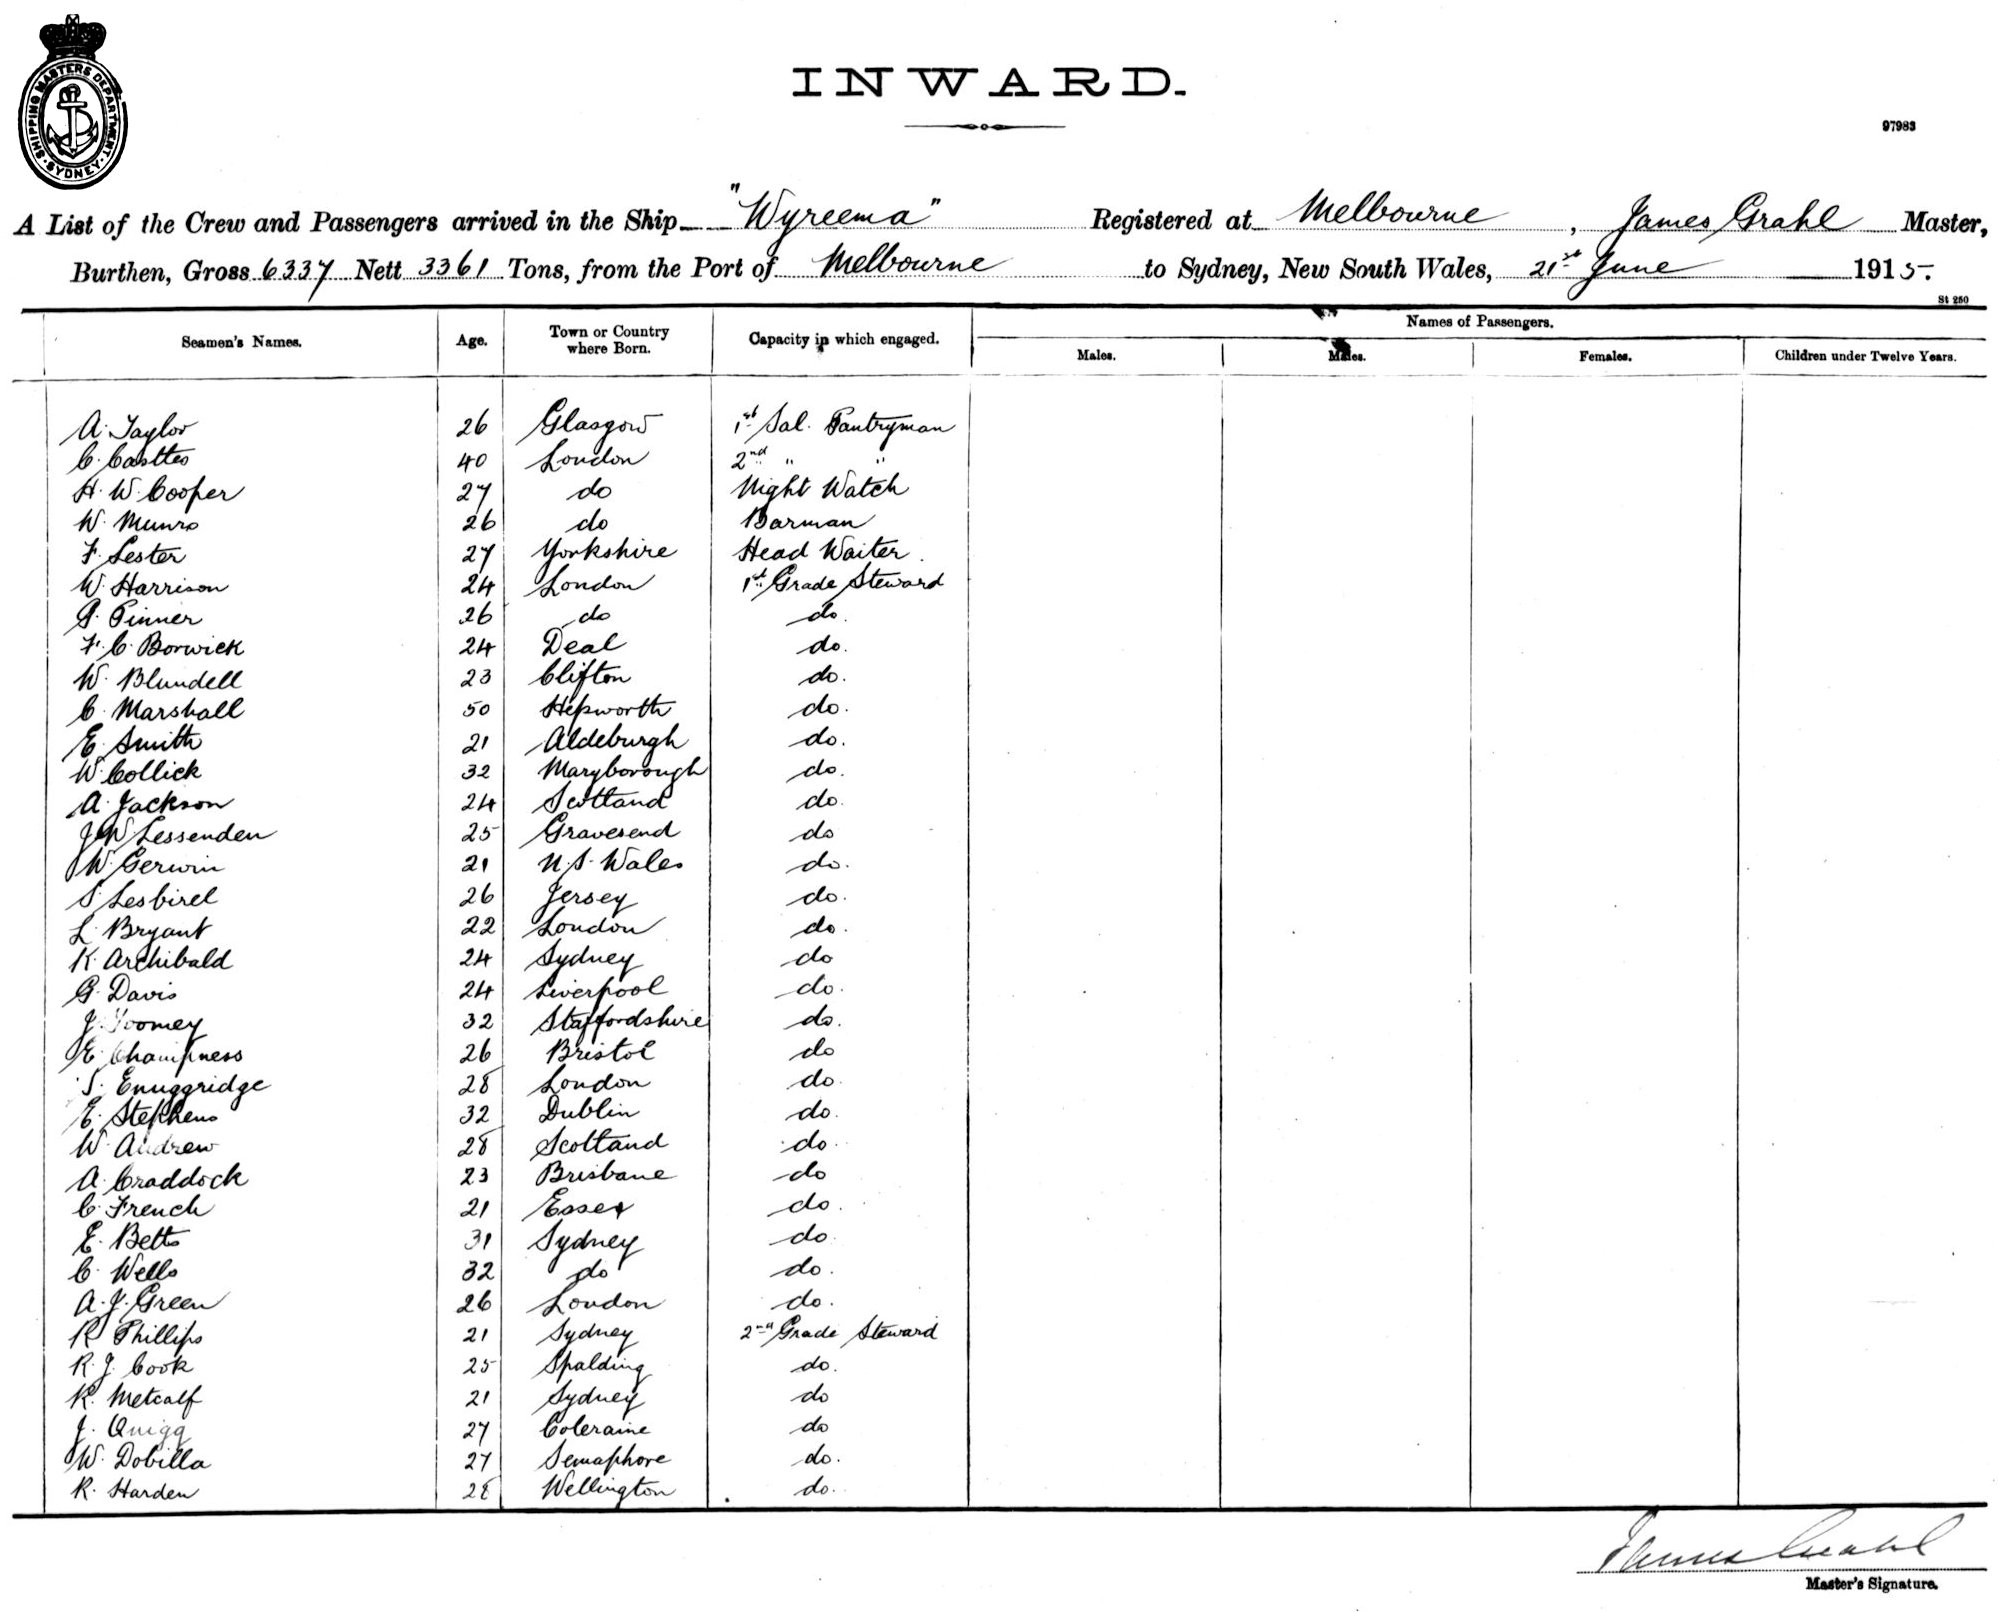 SHIPPING MASTERS DEPARTMENT · SYDNEY ·
INWARD.
97983
A List of the Crew and Passengers arrived in the Ship "Wyreema" Registered at Melbourne, James Grahl Master,
Burthen, Gross 6337 Nett 3361 Tons, from the Port of Melbourne to Sydney, New South Wales, 21st June 1915.
St 250
Seamen's Names. Age. Town or Country where Born. Capacity in which engaged. Names of Passengers.
Males. Males. Females. Children under Twelve Years.
A. Taylor 26 Glasgow 1st Sal. Pantryman
C. Casttes 40 London 2nd " "
H. W. Cooper 27 do Night Watch
W. Munro 26 do Barman
F. Lester 27 Yorkshire Head Waiter.
W. Harrison 24 London 1st Grade Steward
P. Pinner 26 do do.
F. C. Borwick 24 Deal do.
W. Blundell 23 Clifton do.
C. Marshall 50 Hepworth do.
E. Smith 21 Aldeburgh do.
W. Collick 32 Maryborough do.
A. Jackson 24 Scotland do.
J W Lessenden 25 Gravesend do
W. Gerwin 21 N. S. Wales do.
S. Lesbirel 26 Jersey do.
L. Bryant 22 London do.
K. Archibald 24 Sydney do
G. Davis 24 Liverpool do.
J. Toomey 32 Staffordshire do.
E. Champness 26 Bristol do
S. Enuggridge 28 London do.
E. Stephens 32 Dublin do.
W. Andrew 28 Scotland do.
A. Craddock 23 Brisbane do
C. French 21 Essex do.
E. Betts 31 Sydney do.
C. Wells 32 do do.
A. J. Green 26 London do.
R Phillips 21 Sydney 2nd Grade Steward
R. J. Cook 25 Spalding do.
R. Metcalf 21 Sydney do
J. Quigg 27 Coleraine do
W. Dobilla 27 Semaphore do.
R. Harden 28 Wellington do.
James Grahl
Master's Signature.